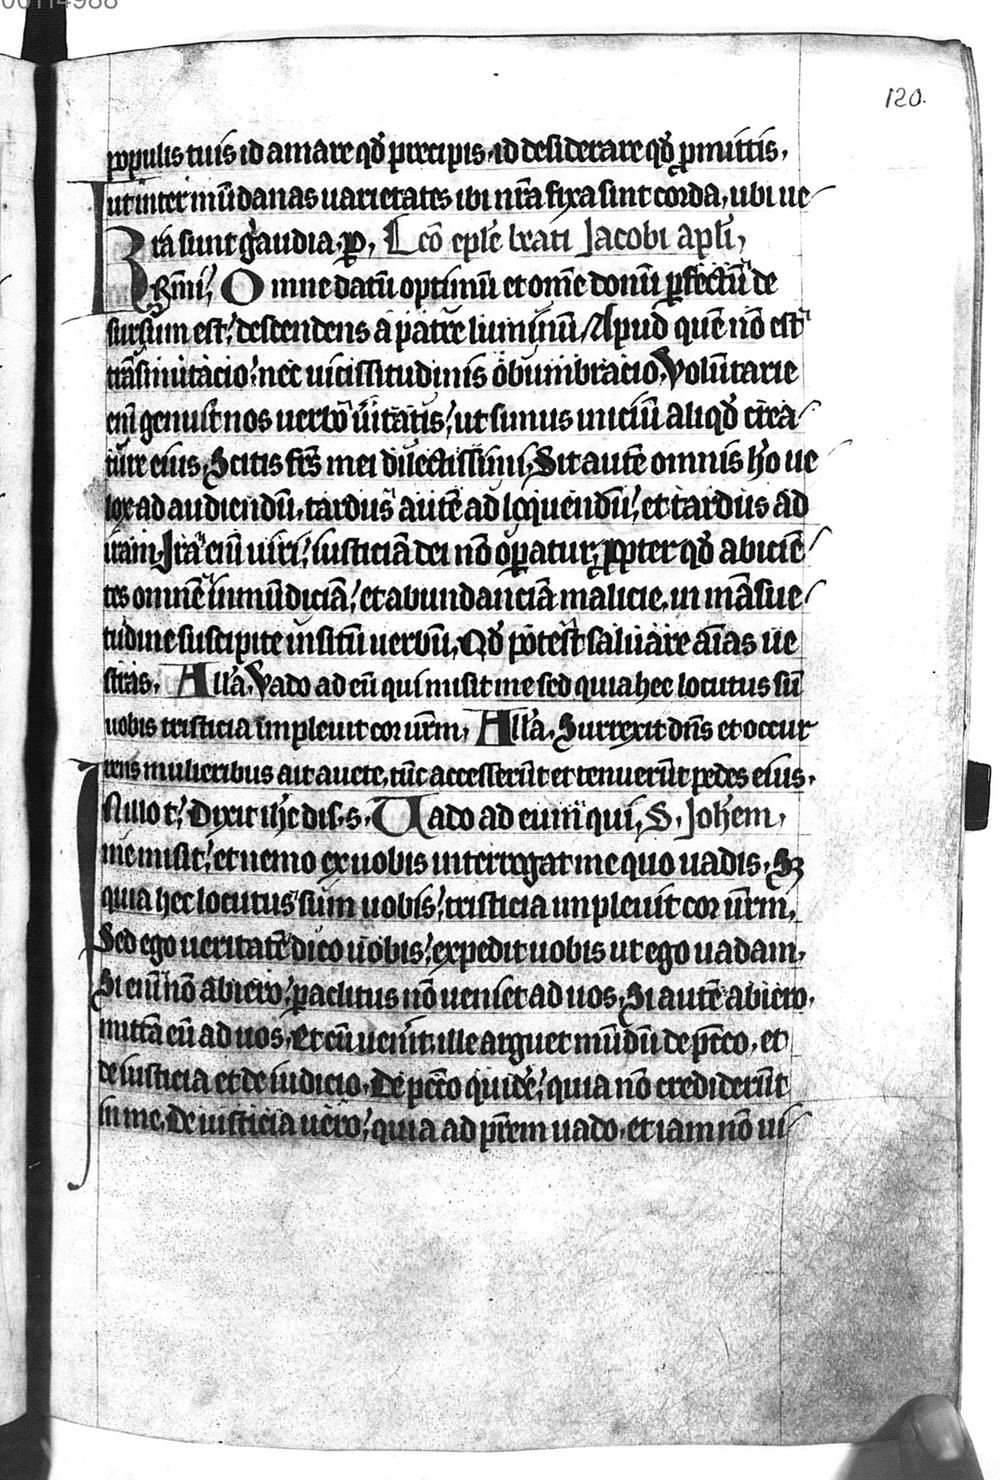 00114988
120.
populis tuis id amare qđ precipis, id desiderare qđ ꝓmittis,
ut inter mūdanas uarietates ibi nr̄a fixa sint corda, ubi ue
ra sunt gaudia, ꝑ, Lcō eplē beati Jacobi apl̄i,
Kr̄mi, Omne datū optimū et om̄e donū ꝑfectū de
sursum est, descendens a patre luminū, Apud quē nō est
trāsmutacio, nec uicissitudinis obumbracio, Voluntarie
eni genuit nos uerbo ūitatis, ut simus iniciū aliqđ crea
ture eius, Scitis fr̄s mei dilectissimi, Sit autē omnis hō ue
lox ad audiendū, tardus autē ad loquendū, et tardus ad
iram, Ira eni uiri, iusticiā dei nō oꝑatur, ꝓpter qđ abicie
tes omnē inmūdiciā, et abundanciā malicie, in māsue
tudine suscipite insitū uerbū, Qđ potest saluare aīas ue
stras, All'a, Vado ad eū qui misit me sed quia hec locutus sū
uobis tristicia impleuit cor ur̄m, All'a, Surrexit dn̄s et occur
rens mulieribus ait auete, tūc accesserūt et tenuerūt pedes eius,
In illo t', Dixit ihc dis. s. Uado ad eum qui, S. Joh̄em,
me misit, et nemo ex uobis interrogat me quo uadis, Sꝫ
quia hec locutus sum uobis, tristicia impleuit cor ur̄m,
Sed ego ueritatē dico uobis, expedit uobis ut ego uadam,
Si eni nō abiero, paclitus nō ueniet ad uos, Si autē abiero,
mittā eū ad uos, Et cū uen̄it, ille arguet mūdū de pc̄co, et
de iusticia et de iudicio, De pc̄co quidē, quia nō crediderūt
in me, De iusticia uero, quia ad pr̄em uado, et iam nō ui